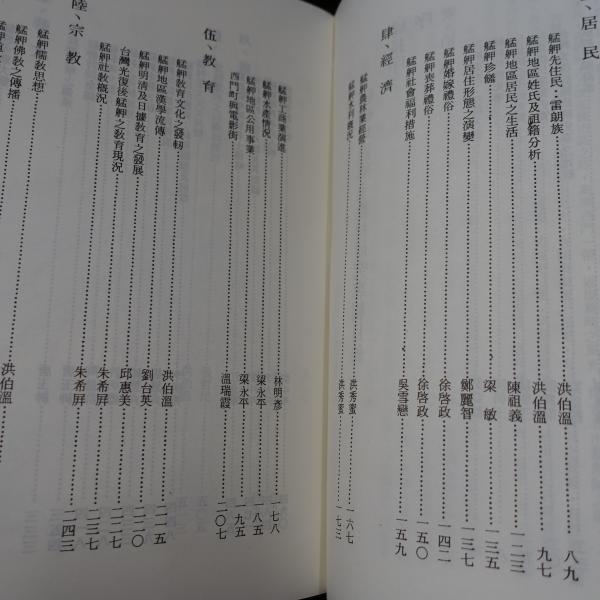 、居民
艋舺先住民・雷朗族 洪伯溫 八九
艋舺地區姓氏及祖籍分析 洪伯溫 九七
艋舺地區居民之生活 陳祖義 一二三
艋舺珍饈 梁敏 一三五
艋舺居住形態之演變 鄭麗智 一三七
艋舺婚嫁禮俗 徐啓政 一四二
艋舺喪葬禮俗 徐啓政 一五〇
艋舺社會福利措施 吳雪戀 一五九
肆、經濟
艋舺農林業經營 洪秀蜜 一六七
艋舺水利概況 洪秀蜜 一七三
艋舺工商業演進 林明彥 一七八
艋舺水產情況 梁永平 一八五
艋舺地區公用事業 梁永平 一九五
西門町與電影街 溫瑞霞 二〇七
伍、教育
艋舺教育文化之發軔 洪伯溫 二一五
艋舺地區漢學流傳 劉台英 二二〇
艋舺明清及日據教育之發展 邱惠美 二二七
台灣光復後艋舺之教育現況 朱希屏 二三七
艋舺社教概況 朱希屏 二四三
陸、宗教
艋舺儒教思想 洪伯溫
艋舺佛教之傳播